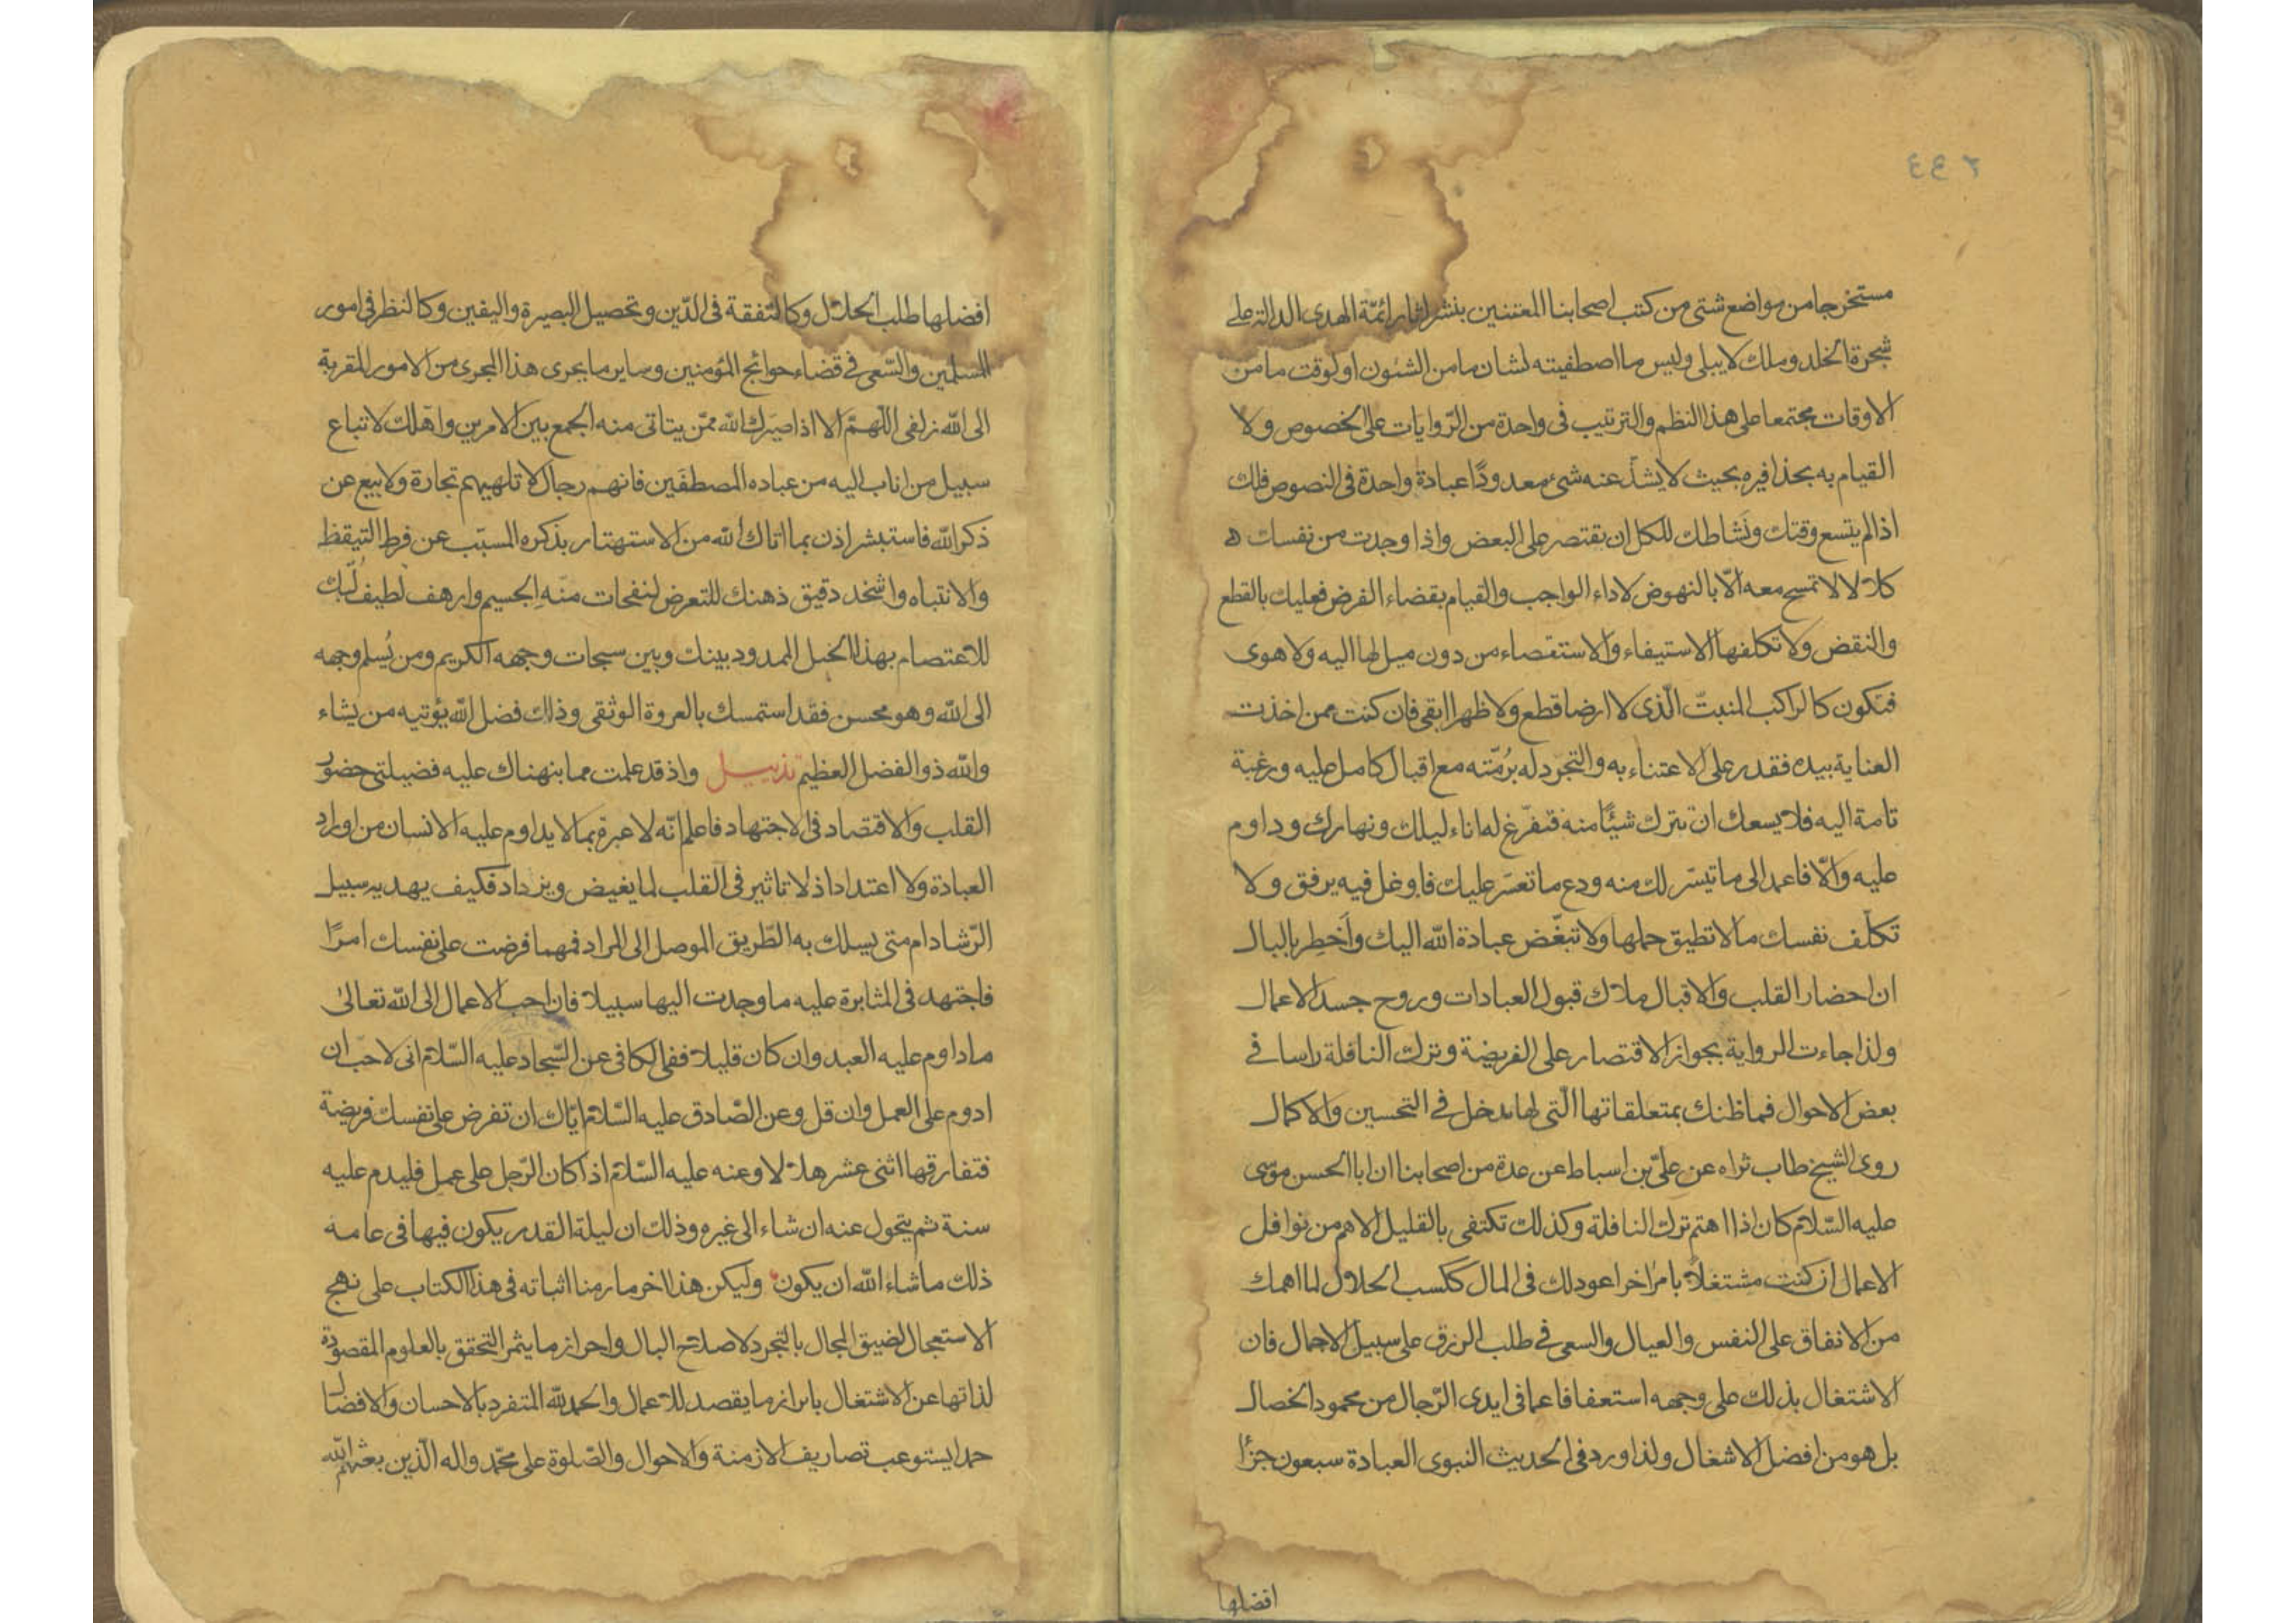 ٢٤٤
مستخرجا من مواضع شتى من كتب اصحابنا المعتنين بنشر اثار ائمّة الهدى الدالة على
شجرة الخلد وملك لا يبلى وليس ما اصطفيته لشان ما من الشئون او لوقت ما من
الاوقات مجتمعا على هذا النظم والترتيب فى واحدة من الرّوايات على الخصوص ولا
القيام به بحذافيره بحيث لا يشذّ عنه شئ معدودًا عبادة واحدة فى النصوص فلك
اذا لم يتسع وقتك ونَشاطك للكل ان تقتصر على البعض واذا وجدت من نفسك
كلالا لا تسمح معه الّا بالنهوض لاداء الواجب والقيام بقضاء الفرض فعليك بالقطع
والنقض ولا تكلفها الاستيفاء والاستقصاء من دون ميل لها اليه ولا هوى
فتكون كالراكب المنبتّ الّذى لا ارضا قطع ولا ظهرا ابقى فان كنت ممن اخذت
العناية بيده فقدر على الاعتناء به والتجرد له برُمّته مع اقبال كامل عليه ورغبة
تامة اليه فلا يسعك ان تترك شيئًا منه فتفرّغ له اناء ليلك ونهارك وداوم
عليه والّا فاعمد الى ما تيسّر لك منه ودع ما تعسّر عليك فاوغل فيه برفق ولا
تكلّف نفسك ما لا تطيق حملها ولا تبغّض عبادة الله اليك وأَخطِر بالبال
ان احضار القلب والاقبال ملاك قبول العبادات وروح جسد الاعمال
ولذا جاءت الرواية بجواز الاقتصار على الفريضة وترك النافلة راسا فى
بعض الاحوال فما ظنك بمتعلقاتها الّتى لها مدخل فى التحسين والاكمال
روى الشيخ طاب ثراه عن علىّ بن اسباط عن عدة من اصحابنا ان ابا الحسن موسى
عليه السّلام كان اذا اهتم ترك النافلة وكذلك تكتفى بالقليل الاهم من نوافل
الاعمال ان كنت مشتغلاً بامر اخر اعود لك فى المال ككسب الحلال لما اهمك
من الانفاق على النفس والعيال والسعى فى طلب الرزق على سبيل الاجمال فان
الاشتغال بذلك على وجهه استعفافا عما فى ايدى الرّجال من محمود الخصال
بل هو من افضل الاشغال ولذا ورد فى الحديث النبوى العبادة سبعون جزًا
افضلها
افضلها طلب الحلال وكالتّفقة فى الدّين وتحصيل البصيرة واليقين وكالنظر فى امور
المسلمين والسّعى فى قضاء حوائج المؤمنين وساير ما يجرى هذا المجرى من الامور المقربة
الى الله زلفى اللّهمّ الا اذا صيّرك الله ممّن يتاتى منه الجمع بين الامرين واهّلك لاتباع
سبيل من اناب اليه من عباده المصطفَين فانهم رجال لا تلهيهم تجارة ولا بيع عن
ذكر الله فاستبشر اذن بما اتاك الله من الاستهتار بذكره المسبّب عن فرط التيقظ
والانتباه واشخذ دقيق ذهنك للتعرض لنفحات منّهِ الجسيم وارهف لطيف لُبّك
للاعتصام بهذا الحبل الممدود بينك وبين سبحات وجهه الكريم ومن يُسلم وجهه
الى الله وهو محسن فقد استمسك بالعروة الوثقى وذلك فضل الله يؤتيه من يشاء
والله ذو الفضل العظيم تذييل واذ قد علمت مما بنهناك عليه فضيلتى حضور
القلب والاقتصاد فى الاجتهاد فاعلم انّه لا عبرة بما لا يداوم عليه الانسان من اوراد
العبادة ولا اعتداد اذ لا تاثير فى القلب لما يغيض ويزداد فكيف يهديه سبيل
الرّشاد ام متى يسلك به الطّريق الموصل الى المراد فمهما فرضت على نفسك امرًا
فاجتهد فى المثابرة عليه ما وجدت اليها سبيلا فان احب الاعمال الى الله تعالىٰ
ما داوم عليه العبد وان كان قليلا ففى الكافى عن السّجاد عليه السّلام انى لاحبّ ان
ادوم على العمل وان قل وعن الصّادق عليه السّلام ايّاك ان تفرض على نفسك فريضة
فتفارقها اثنى عشر هلالا وعنه عليه السّلام اذا كان الرّجل على عمل فليدم عليه
سنة ثم يتحول عنه ان شاء الى غيره وذلك ان ليلة القدر يكون فيها فى عامه
ذلك ما شاء الله ان يكون وليكن هذا اخر ما رمنا اثباته فى هذا الكتاب على نهج
الاستعجال لضيق المجال بالتجرد لاصلاح البال واحراز ما يثمر التحقق بالعلوم المقصودة
لذاتها عن الاشتغال بابراز ما يقصد للاعمال والحمد لله المتفرد بالاحسان والافضال
حمدا يستوعب تصاريف الازمنة والاحوال والصّلوة على محمّد واله الّذين بعثهم الله